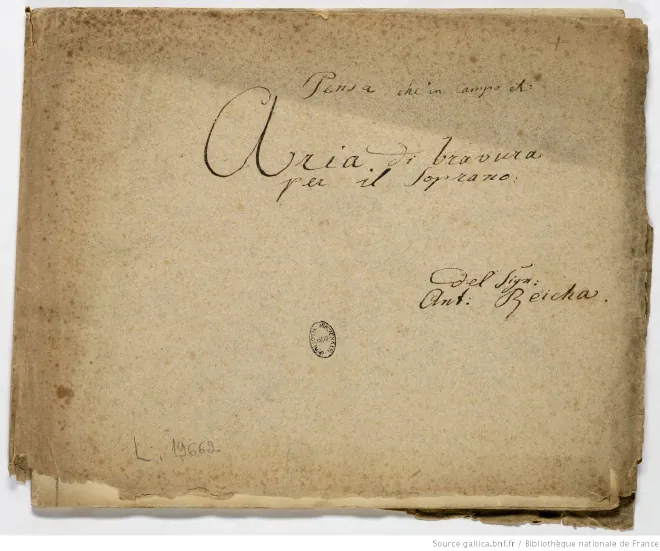 Pensa che in campo et:
Aria di bravura
per il Soprano:
del Sign:
Ant: Reicha.
L. 19662
Source gallica.bnf.fr / Bibliothèque nationale de France